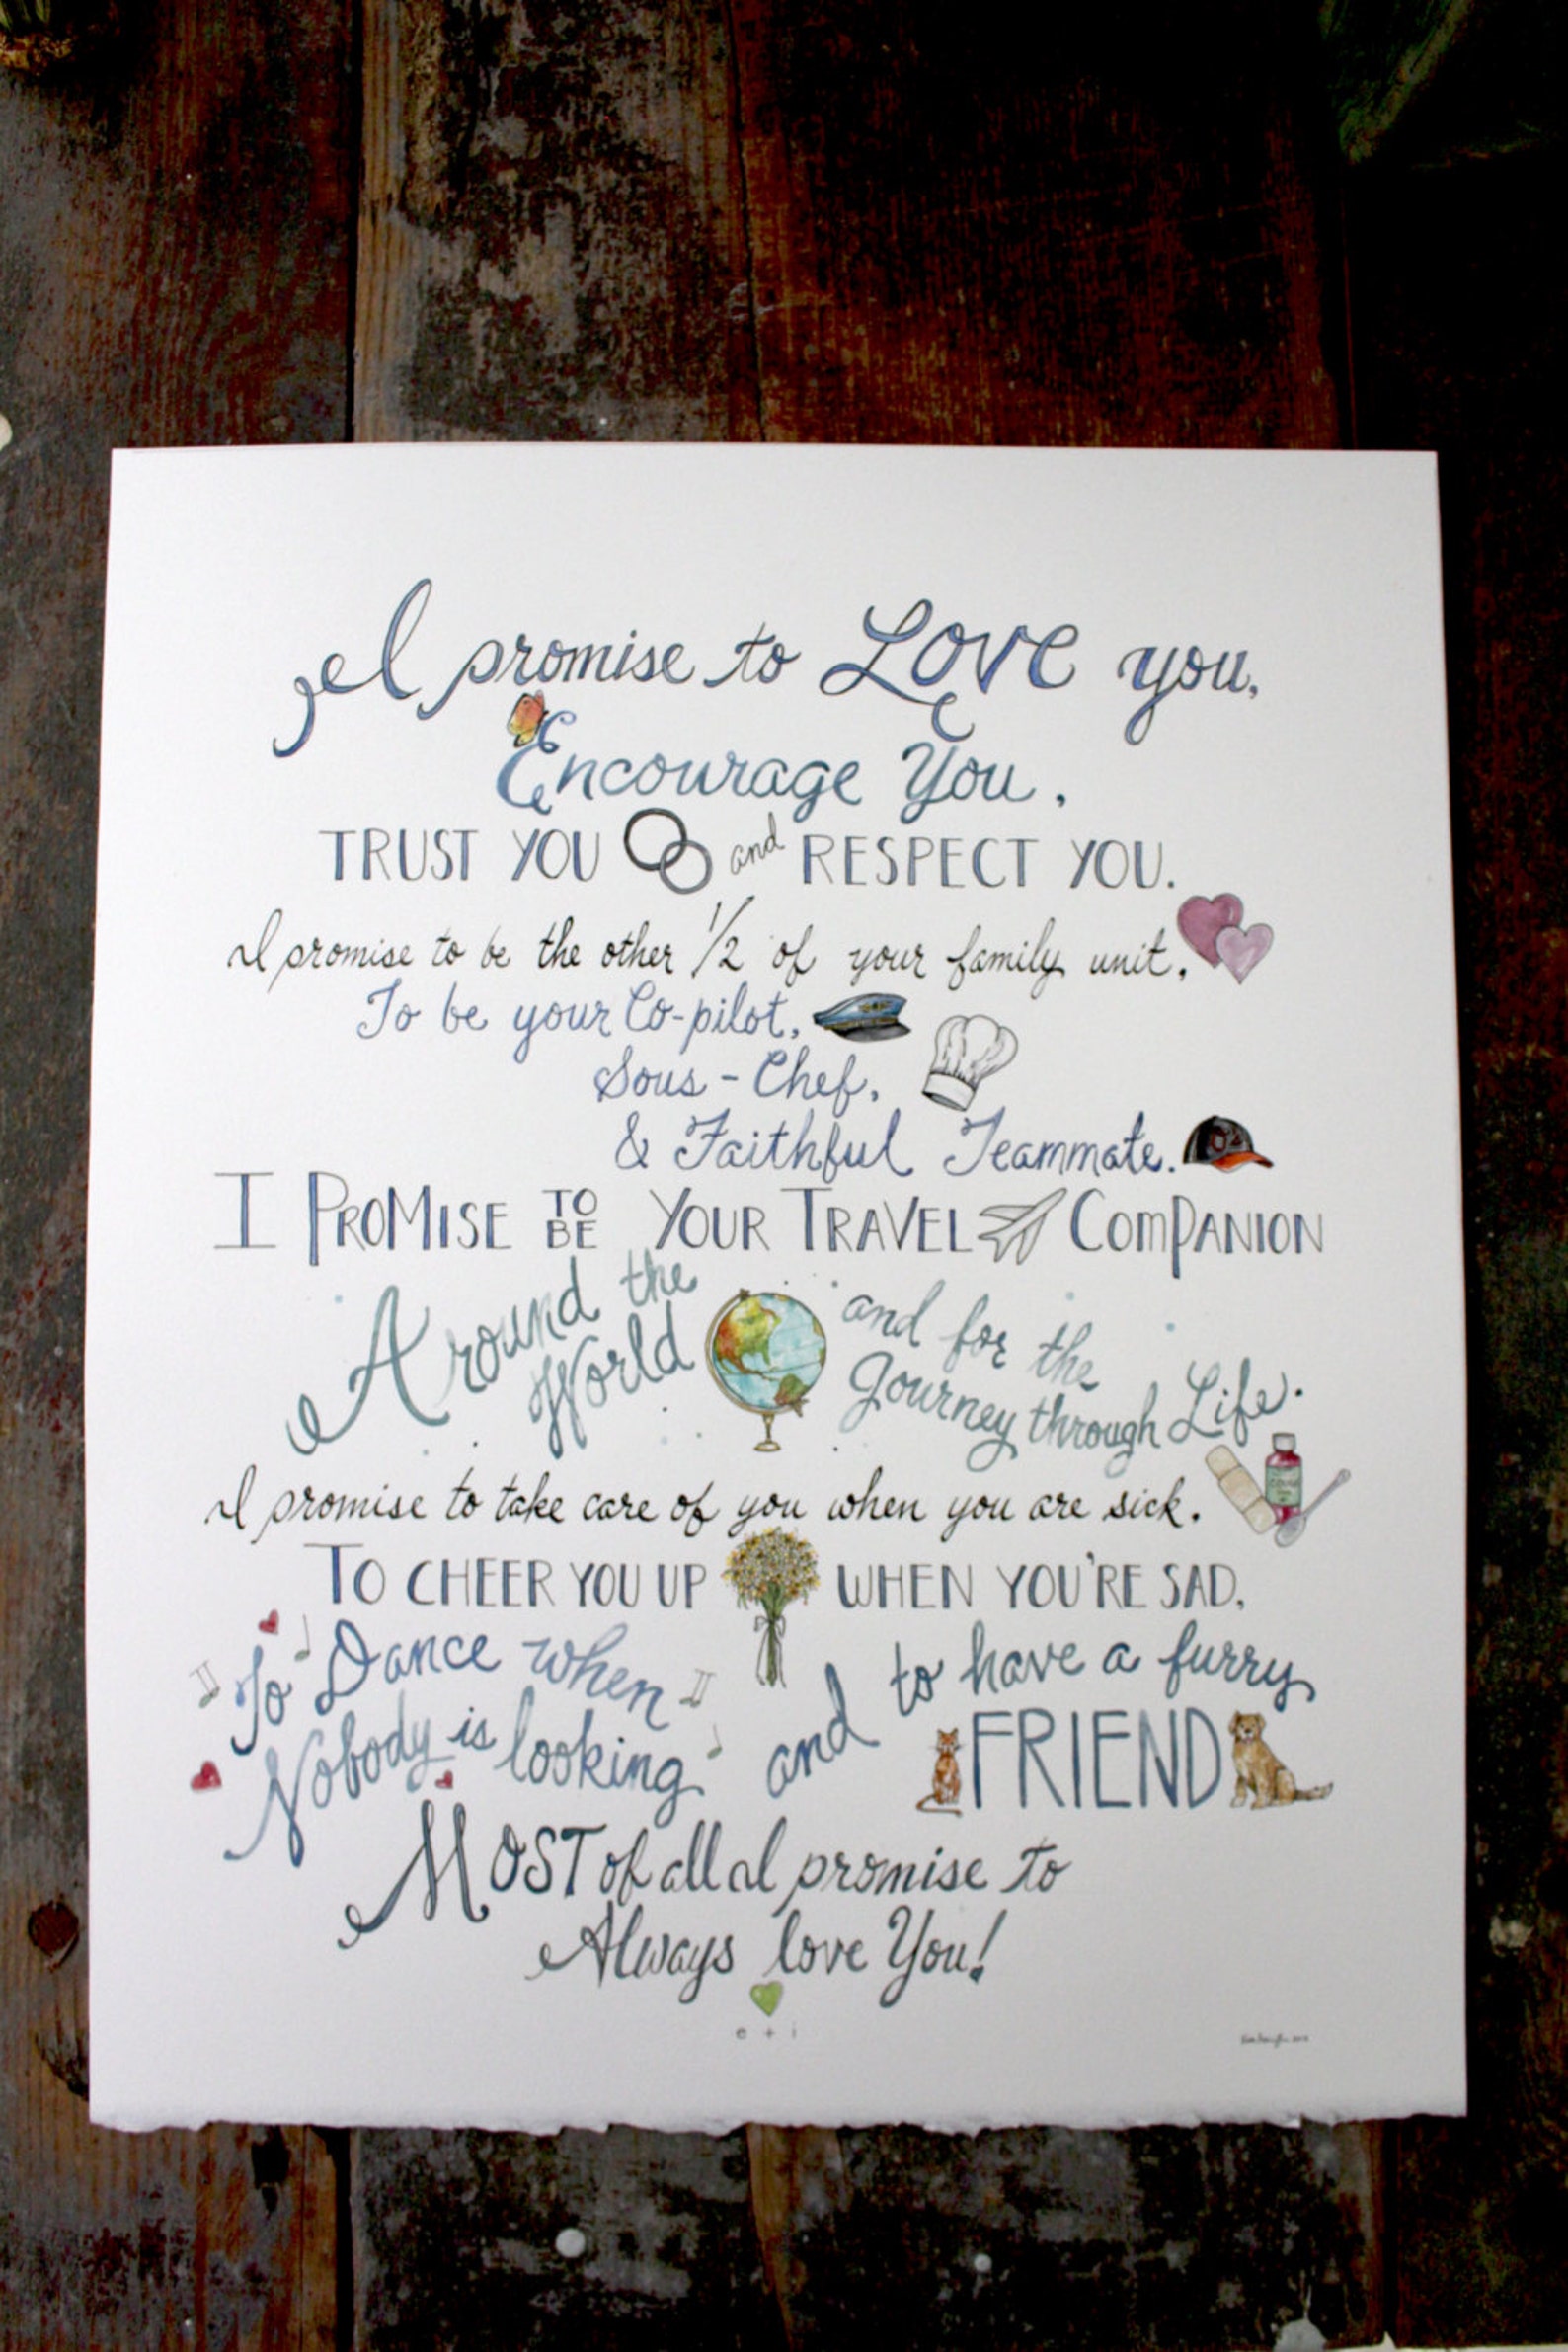 I promise to Love you,
Encourage You,
TRUST YOU and RESPECT YOU.
I promise to be the other 1/2 of your family unit,
To be your Co-pilot,
Sous-Chef,
& Faithful Teammate.
I PROMISE TO BE YOUR TRAVEL COMPANION
Around the
World
and for the
Journey through Life.
I promise to take care of you when you are sick.
TO CHEER YOU UP WHEN YOU'RE SAD,
To Dance when
Nobody is looking
and to have a furry
FRIEND
MOST of all I promise to
Always love You!
e + i